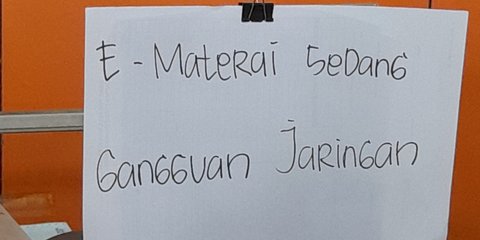 E - Materai Sedang
Gangguan Jaringan